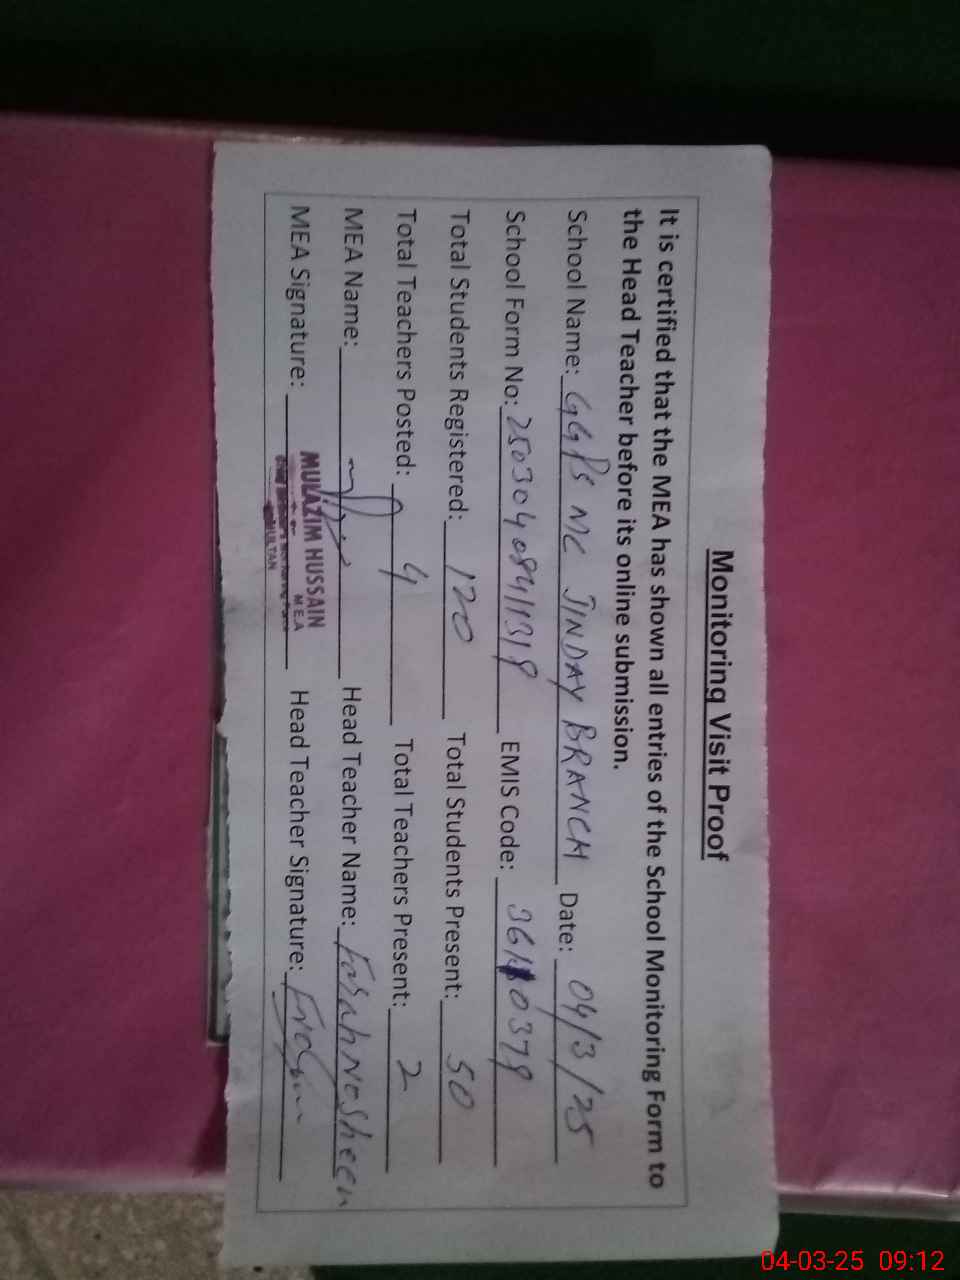 Monitoring Visit Proof
It is certified that the MEA has shown all entries of the School Monitoring Form to
the Head Teacher before its online submission.
School Name: GGPS MC JINDAY BRANCH Date: 04/3/25
School Form No: EMIS Code:
Total Students Registered: 120 Total Students Present: 50
Total Teachers Posted: 4 Total Teachers Present: 2
MEA Name: Head Teacher Name: Farah Nosheen
MEA Signature: Head Teacher Signature:
MULAZIM HUSSAIN
M.E.A
MULTAN
04-03-25 09:12